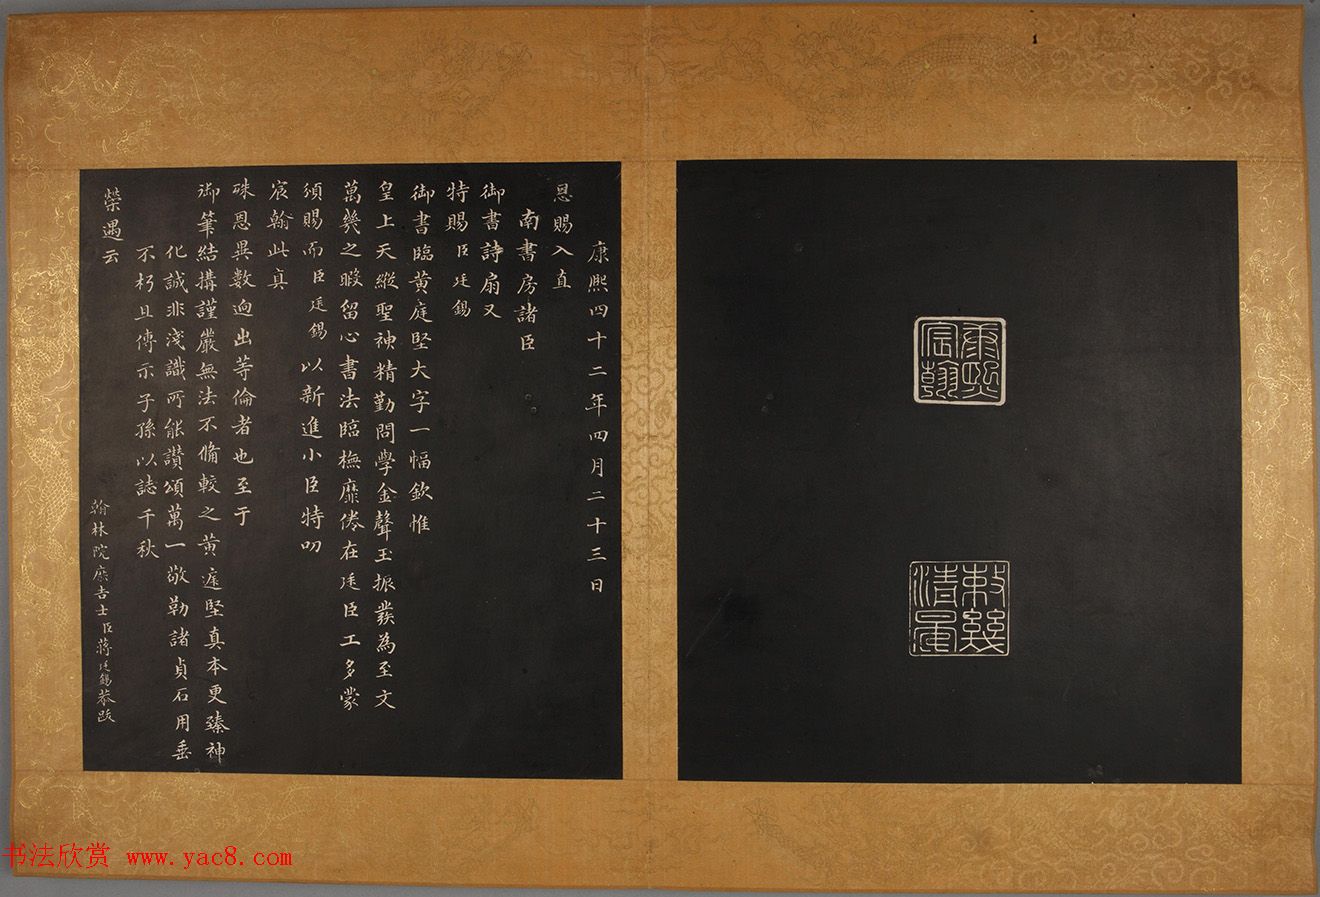 康熙宸翰
敕幾清晏
康熙四十二年四月二十三日
恩賜入直
南書房諸臣
御書詩扇又
特賜臣廷錫
御書臨黃庭堅大字一幅欽惟
皇上天縱聖神精勤問學金聲玉振發為至文
萬幾之暇留心書法臨橅靡倦在廷臣工多蒙
頒賜而臣廷錫以新進小臣特叨
宸翰此真
殊恩異數逈出等倫者也至于
御筆結搆謹嚴無法不備較之黃庭堅真本更臻神
化誠非淺識所能讚頌萬一敬勒諸貞石用垂
不朽且傳示子孫以誌千秋
榮遇云
翰林院庶吉士臣蔣廷錫恭跋
书法欣赏 www.yac8.com